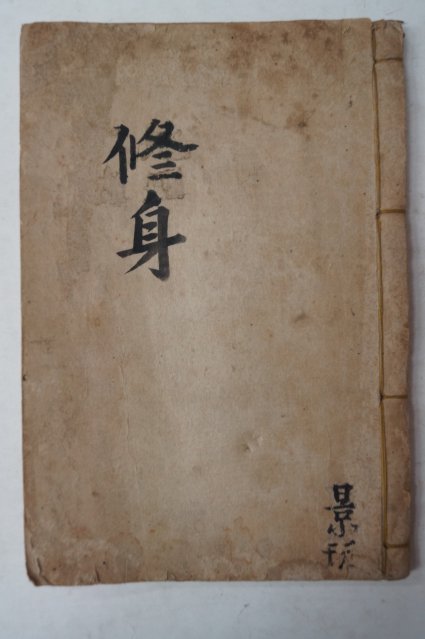 修身
景